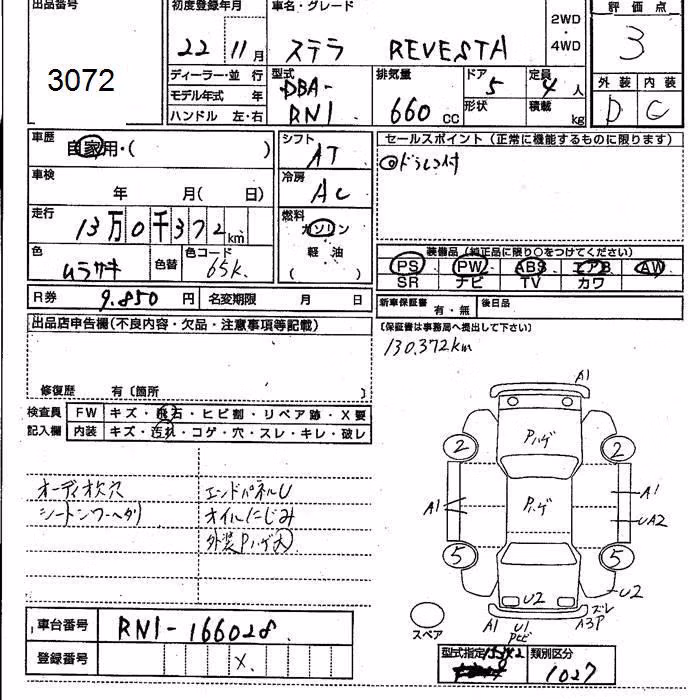 出品番号 初度登録年月 車名・グレード 評価点
3072
22年 11月 ステラ REVESTA 2WD・4WD 3
ディーラー・並行 型式 排気量 ドア 定員 外装 内装
モデル年式 年 DBA- 5 4人 D C
ハンドル 左・右 RN1 660cc 形状 積載 kg
車歴 自家用・( ) シフト AT セールスポイント (正常に機能するものに限ります)
車検 年 月( 日) 冷房 AC ◎ドラレコ付
走行 13万0千372km 燃料 ガソリン 軽油 ( )
色 ムラサキ 色替 色コード 65K
装備品 (純正品に限り○をつけてください)
PS PW ABS エアB AW
SR ナビ TV カワ
R券 9.850円 名変期限 月 日 新車保証書 有・無 後日品
出品店申告欄(不良内容・欠品・注意事項等記載) (保証書は事務局へ提出して下さい)
130,372km
修復歴 有〔箇所 〕
検査員 FW キズ・飛石・ヒビ割・リペア跡・X要
記入欄 内装 キズ・汚れ・コゲ・穴・スレ・キレ・破レ
A1
Pハゲ
2 2
オーディオ欠穴 エンドパネルU
A1 Pハゲ A1
シートシワ・ヘタリ オイルにじみ
UA2
外装Pハゲ大
5 5
U2 U2
スペア A1 U1 Pヒビ A3P ズレ
車台番号 RN1-166028
登録番号 X
型式指定 類別区分
1027